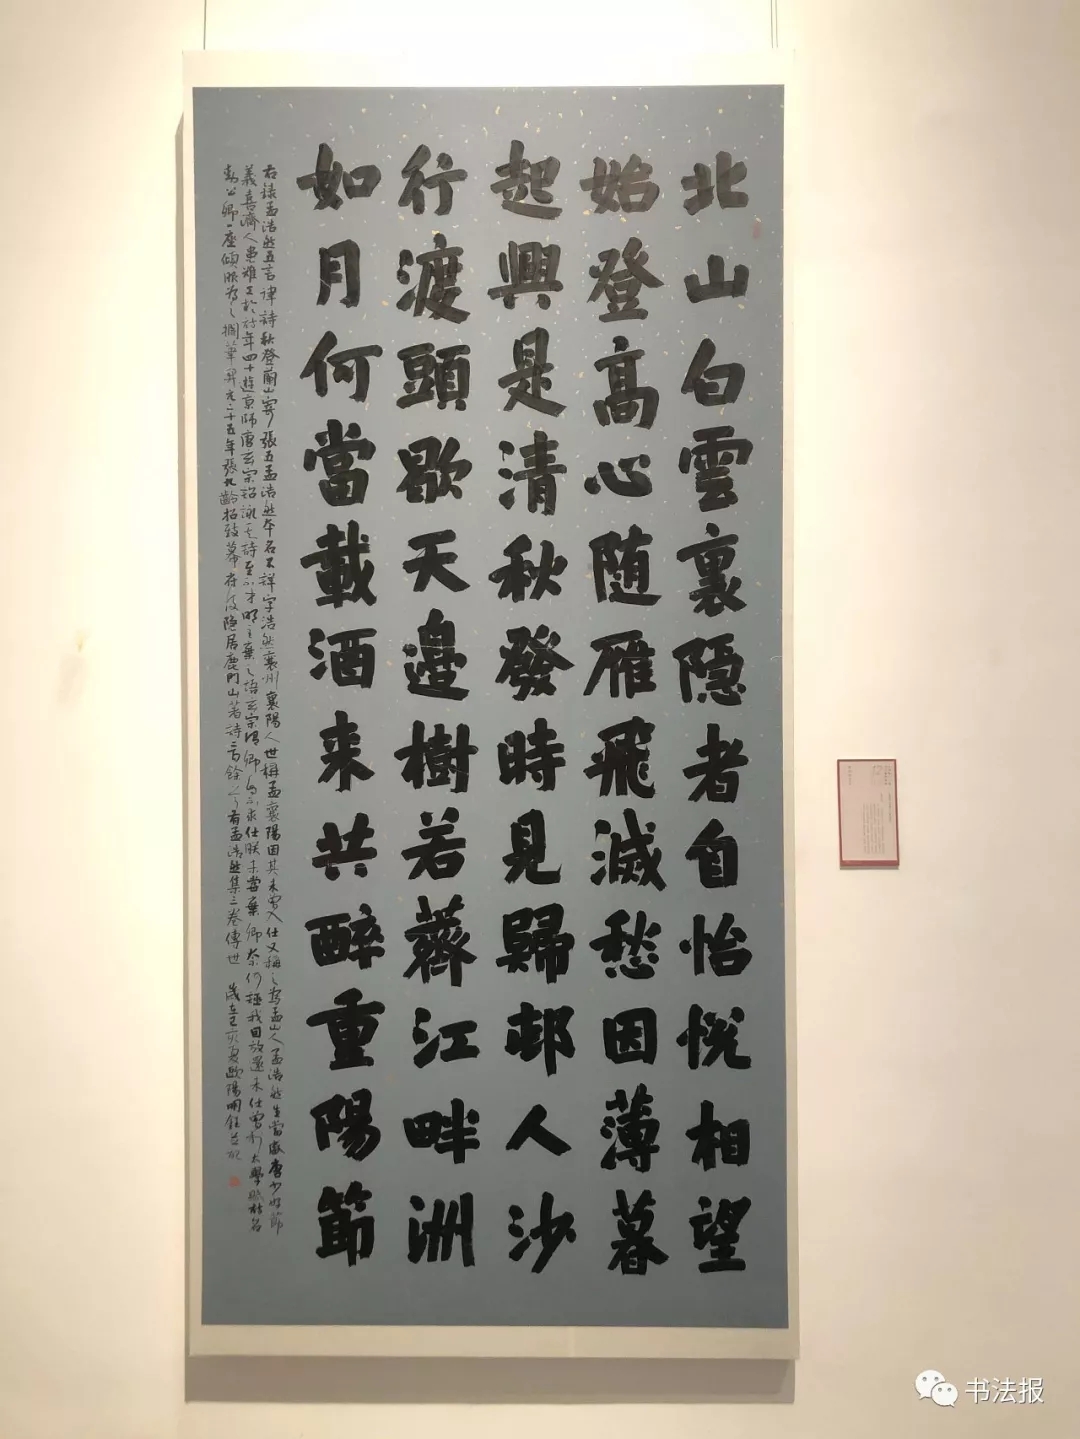 北山白雲裏隱者自怡悅相望
始登高心随雁飛滅愁因薄暮
起興是清秋發時見歸邨人沙
行渡頭歇天邊樹若薺江畔洲
如月何當載酒来共醉重陽節
右錄孟浩然五言律詩秋登蘭山寄張五孟浩然本名不詳字浩然襄州襄陽人世稱孟襄陽因其未曾入仕又稱之為孟山人孟浩然生當盛唐少好節
義喜濟人患難工於詩年四十遊京師唐玄宗詔詠其詩至不才明主棄之語玄宗謂卿自不求仕朕未嘗棄卿奈何誣我因放還未仕曾於太學賦詩名
動公卿一座傾服為之擱筆開元二十五年張九齡招致幕府後隱居鹿門山著詩二百餘首有孟浩然集三卷傳世 歲在己亥夏歐陽明鈺並記
书法报